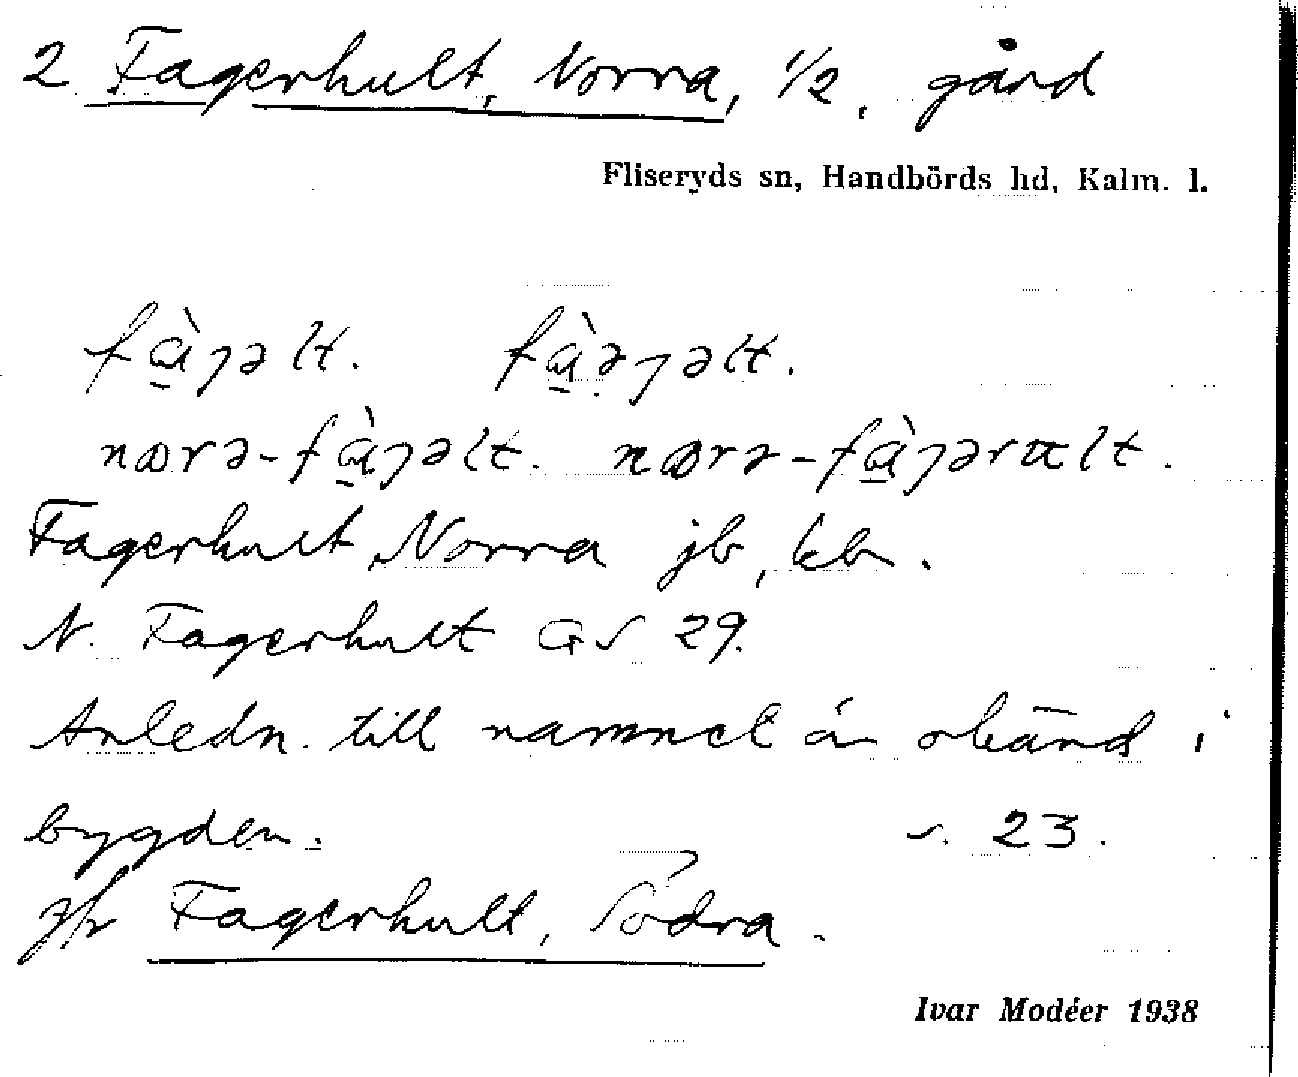 2 Fagerhult, Norra, 1/2, gård
Fliseryds sn, Handbörds hd, Kalm. l.
fàȷəlt. fàəȷəlt.
nɷrə-fàȷəlt. nɷrə-fàȷərɷlt.
Fagerhult, Norra jb, kb.
N. Fagerhult GS 29.
Anledn. till namnet är okänd i
bygden. s. 23.
Jfr Fagerhult, Södra.
Ivar Modéer 1938